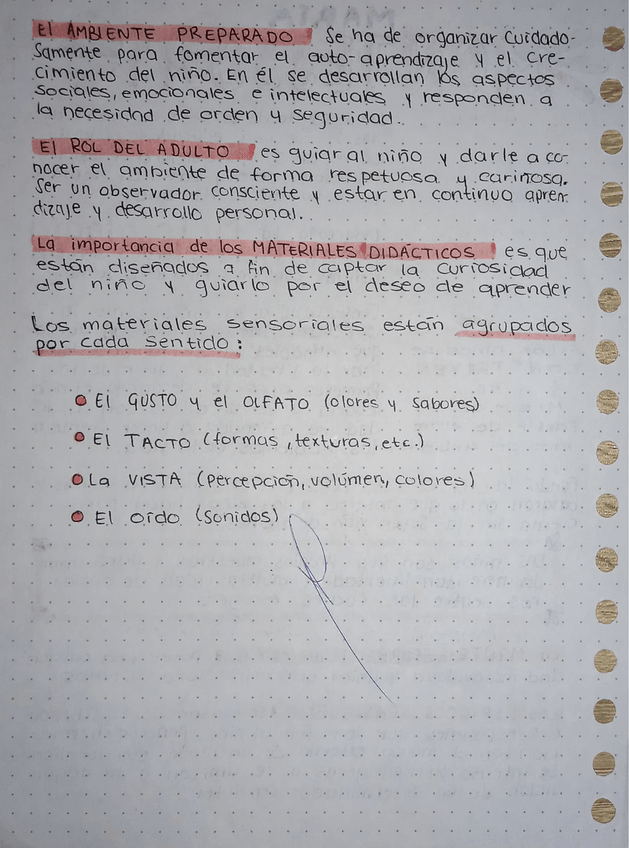 El AMBIENTE PREPARADO Se ha de organizar cuidado-
samente para fomentar el auto-aprendizaje y el cre-
cimiento del niño. En él se desarrollan los aspectos
sociales, emocionales e intelectuales y responden a
la necesidad de orden y seguridad.
El ROL DEL ADULTO es guiar al niño y darle a co-
nocer el ambiente de forma respetuosa y cariñosa.
Ser un observador consciente y estar en continuo apren-
dizaje y desarrollo personal.
La importancia de los MATERIALES DIDÁCTICOS es que
están diseñados a fin de captar la curiosidad
del niño y guiarlo por el deseo de aprender
Los materiales sensoriales están agrupados
por cada sentido:
El GUSTO y el OLFATO (olores y sabores)
El TACTO (formas, texturas, etc.)
La VISTA (percepción, volúmen, colores)
El oído (sonidos)